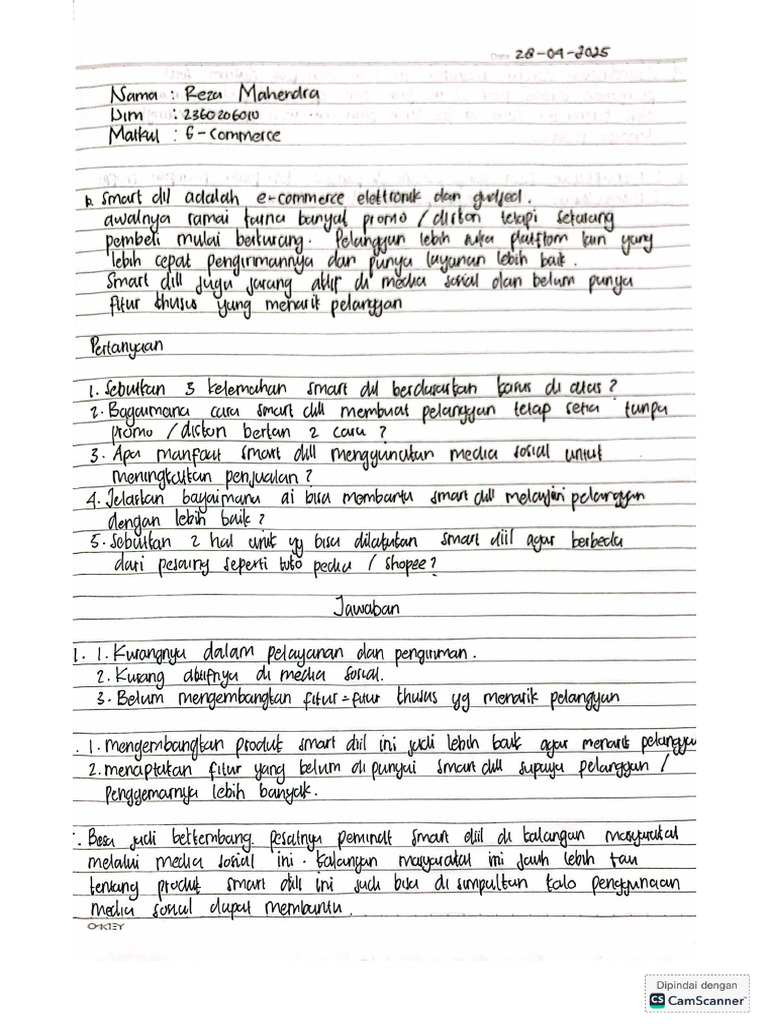 28-04-2025
Nama : Reza Mahendra
Nim : 2360206010
Matkul : E-Commerce
b. Smart dil adalah e-commerce elektronik dan gudjed.
awalnya ramai karna banyak promo / diskon tetapi sekarang
pembeli mulai berkurang. Pelanggan lebih suka platfrom lain yang
lebih cepat pengirimannya dan punya layanan lebih baik.
Smart dill juga jarang aktif di media sosial dan belum punya
fitur khusus yang menarik pelanggan
Pertanyaan
1. Sebutkan 3 kelemahan smart dil berdasarkan kasus di atas ?
2. Bagaimana cara smart dill membuat pelanggan tetap setia tanpa
promo / diskon berikan 2 cara ?
3. Apa manfaat smart dill menggunakan media sosial untuk
meningkatkan penjualan ?
4. Jelaskan bagaimana ai bisa membantu smart dill melayani pelanggan
dengan lebih baik ?
5. Sebutkan 2 hal unik yg bisa dilakukan smart diil agar berbeda
dari pesaing seperti toko pedia / shopee ?
Jawaban
1. 1. Kurangnya dalam pelayanan dan pengiriman.
2. Kurang aktifnya di media sosial.
3. Belum mengembangkan fitur-fitur khusus yg menarik pelanggan
. 1. mengembangkan produk smart diil ini jadi lebih baik agar menarik pelanggan
2. menciptakan fitur yang belum di punyai smart dill supaya pelanggan /
penggemarnya lebih banyak.
. Bisa jadi berkembang pesatnya peminat smart diil di kalangan masyarakat
melalui media sosial ini. kalangan masyarakat ini jauh lebih tau
tentang produk smart dill ini jadi bisa di simpulkan kalo penggunaan
media sosial dapat membantu.
OKEY
Dipindai dengan
CS CamScanner